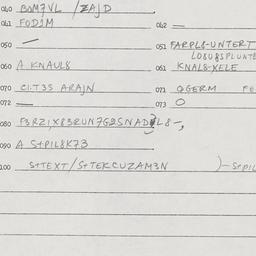 040 BOM7VL /ZAJD
041 FODIM 042 —
050 — 051 FARPL8-UNTERT
LO8U8SPLUNTE
060 A KNAUL8 061 KNAL8-XELE
070 CI:T35 ARAJN 071 QGERM FE
072 — 073 O
080 F3RZI,X83RUN7G2SNAD L8-,
090 A S+PIL8K73
100 S+TEXT/S+TEKCUZAM3N )-S+PIL